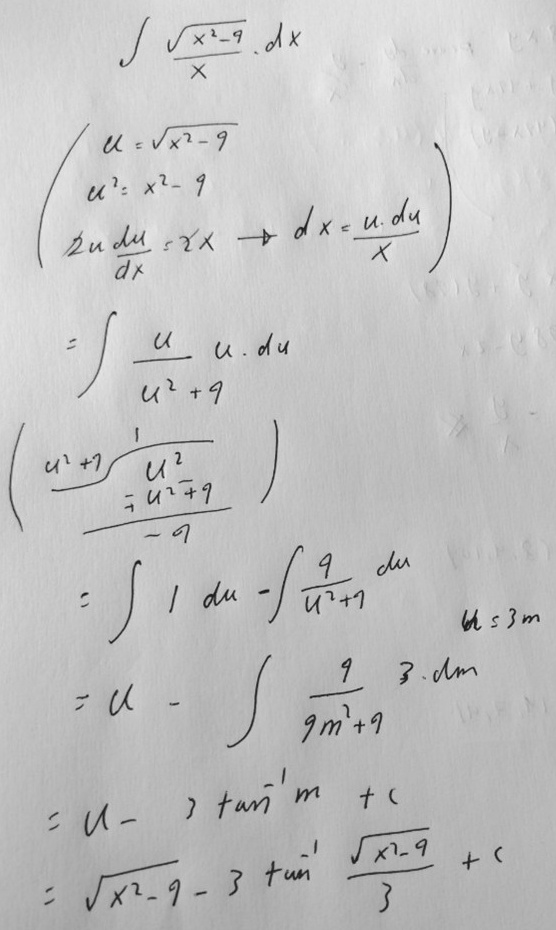 ∫ √(x²-9)/x . dx
u = √(x²-9)
u² = x² - 9
2u du/dx = 2x → dx = u.du/x
= ∫ u/(u²+9) u.du
1
u²+9 ) u²
- u² + 9
- 9
= ∫ 1 du - ∫ 9/(u²+9) du
u = 3m
= u - ∫ 9/(9m²+9) 3.dm
= u - 3 tan⁻¹ m + c
= √(x²-9) - 3 tan⁻¹ √(x²-9)/3 + c